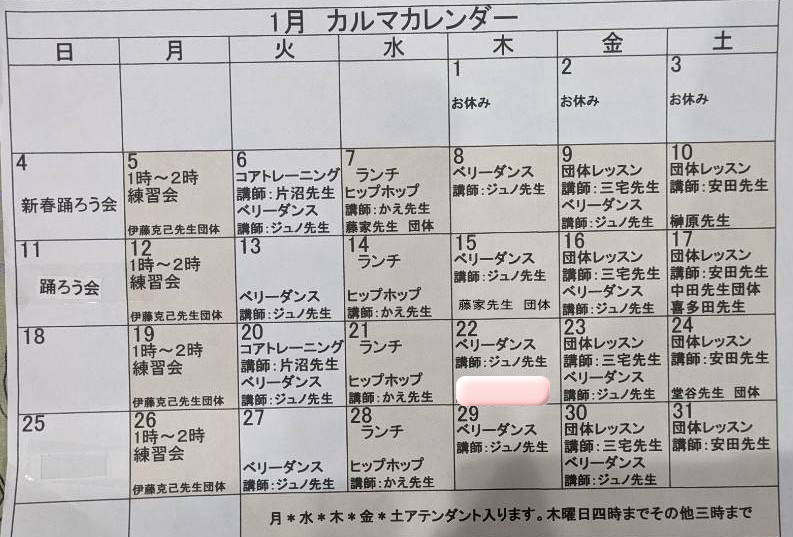 1月 カルマカレンダー
日 月 火 水 木 金 土
1
お休み
2
お休み
3
お休み
4
新春踊ろう会
5
1時～2時
練習会
伊藤克己先生団体
6
コアトレーニング
講師:片沼先生
ベリーダンス
講師:ジュノ先生
7
ランチ
ヒップホップ
講師:かえ先生
藤家先生 団体
8
ベリーダンス
講師:ジュノ先生
9
団体レッスン
講師:三宅先生
ベリーダンス
講師:ジュノ先生
10
団体レッスン
講師:安田先生
榊原先生
11
踊ろう会
12
1時～2時
練習会
伊藤克己先生団体
13
ベリーダンス
講師:ジュノ先生
14
ランチ
ヒップホップ
講師:かえ先生
15
ベリーダンス
講師:ジュノ先生
藤家先生 団体
16
団体レッスン
講師:三宅先生
ベリーダンス
講師:ジュノ先生
17
団体レッスン
講師:安田先生
中田先生団体
喜多田先生
18
19
1時～2時
練習会
伊藤克己先生団体
20
コアトレーニング
講師:片沼先生
ベリーダンス
講師:ジュノ先生
21
ランチ
ヒップホップ
講師:かえ先生
22
ベリーダンス
講師:ジュノ先生
23
団体レッスン
講師:三宅先生
ベリーダンス
講師:ジュノ先生
24
団体レッスン
講師:安田先生
堂谷先生 団体
25
26
1時～2時
練習会
伊藤克己先生団体
27
ベリーダンス
講師:ジュノ先生
28
ランチ
ヒップホップ
講師:かえ先生
29
ベリーダンス
講師:ジュノ先生
30
団体レッスン
講師:三宅先生
ベリーダンス
講師:ジュノ先生
31
団体レッスン
講師:安田先生
月＊水＊木＊金＊土アテンダント入ります。木曜日四時までその他三時まで